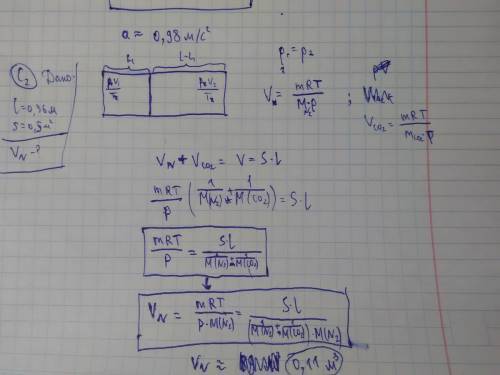 a ≈ 0,98 м/с²
C2 Дано:
l = 0,36 м
S = 0,5 м²
V_N - ?
l₁ l-l₁
p₁V₁/T₁ p₂V₂/T₂
p₁ = p₂
V_N = mRT/(M_N₂·p) ;
V_CO₂ = mRT/(M_CO₂·p)
V_N + V_CO₂ = V = S·l
mRT/p (1/M(N₂) + 1/M(CO₂)) = S·l
mRT/p = S·l/(M⁻¹(N₂)+M⁻¹(CO₂))
V_N = mRT/(p·M(N₂)) = S·l/((M⁻¹(N₂)+M⁻¹(CO₂))·M(N₂))
V_N ≈ 0,11 м³